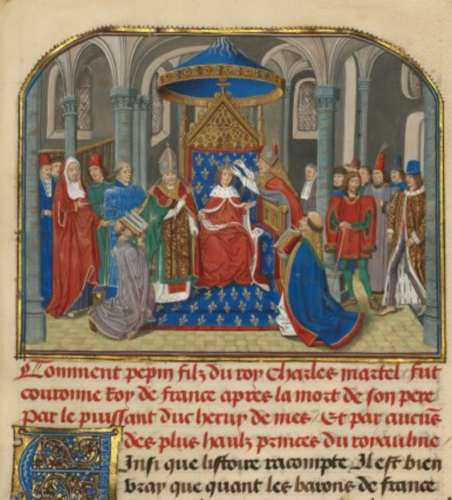 Comment pepin filz du roy Charles martel fut
couronne Roy de france apres la mort de son pere
Par le puissant duc heruy de mes Et par aucuns
des plus haulz princes du royaulme
Ainsi que listoire racompte Il est bien
vray que quant les barons de france